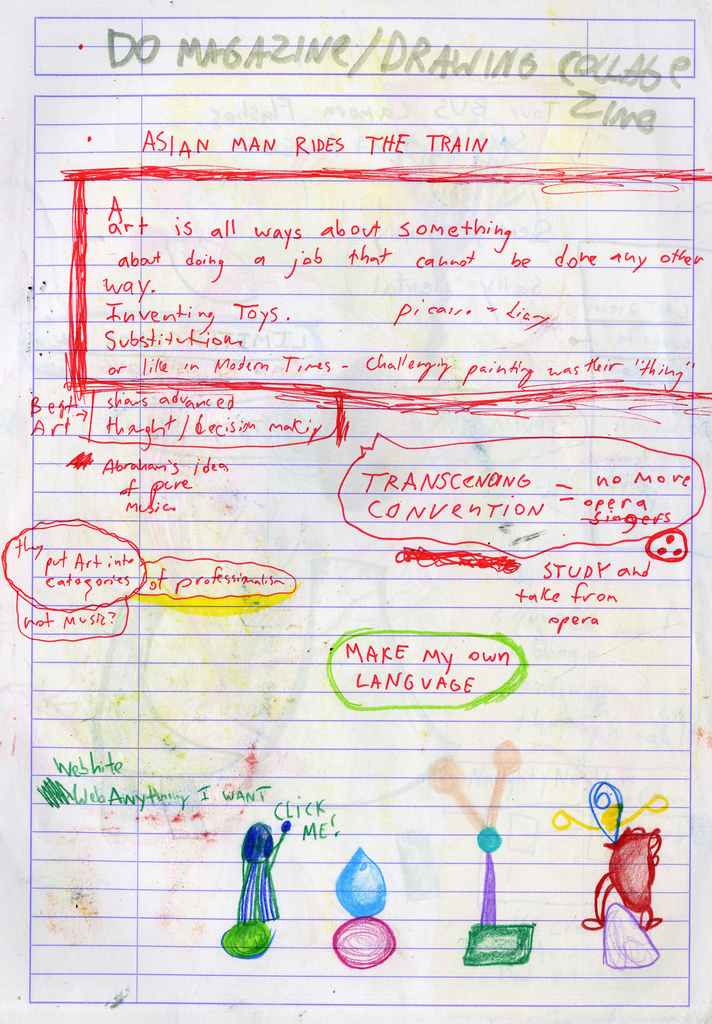 DO MAGAZINE/DRAWING COLLAGE
ZINE
ASIAN MAN RIDES THE TRAIN
A
art is all ways about something
about doing a job that cannot be done any other
way.
Inventing Toys.
picasso - diary
Substitution.
or like in Modern Times - Challenging painting was their "thing"
Best Art → shows advanced
thought/decision making
Abraham's idea
of pure
music.
TRANSCENDING = no more
CONVENTION = opera
singers
they put Art into
categories of professionalism
not Music?
STUDY and
take from
opera
MAKE My own
LANGUAGE
Website
WebAnything I WANT
CLICK
ME!